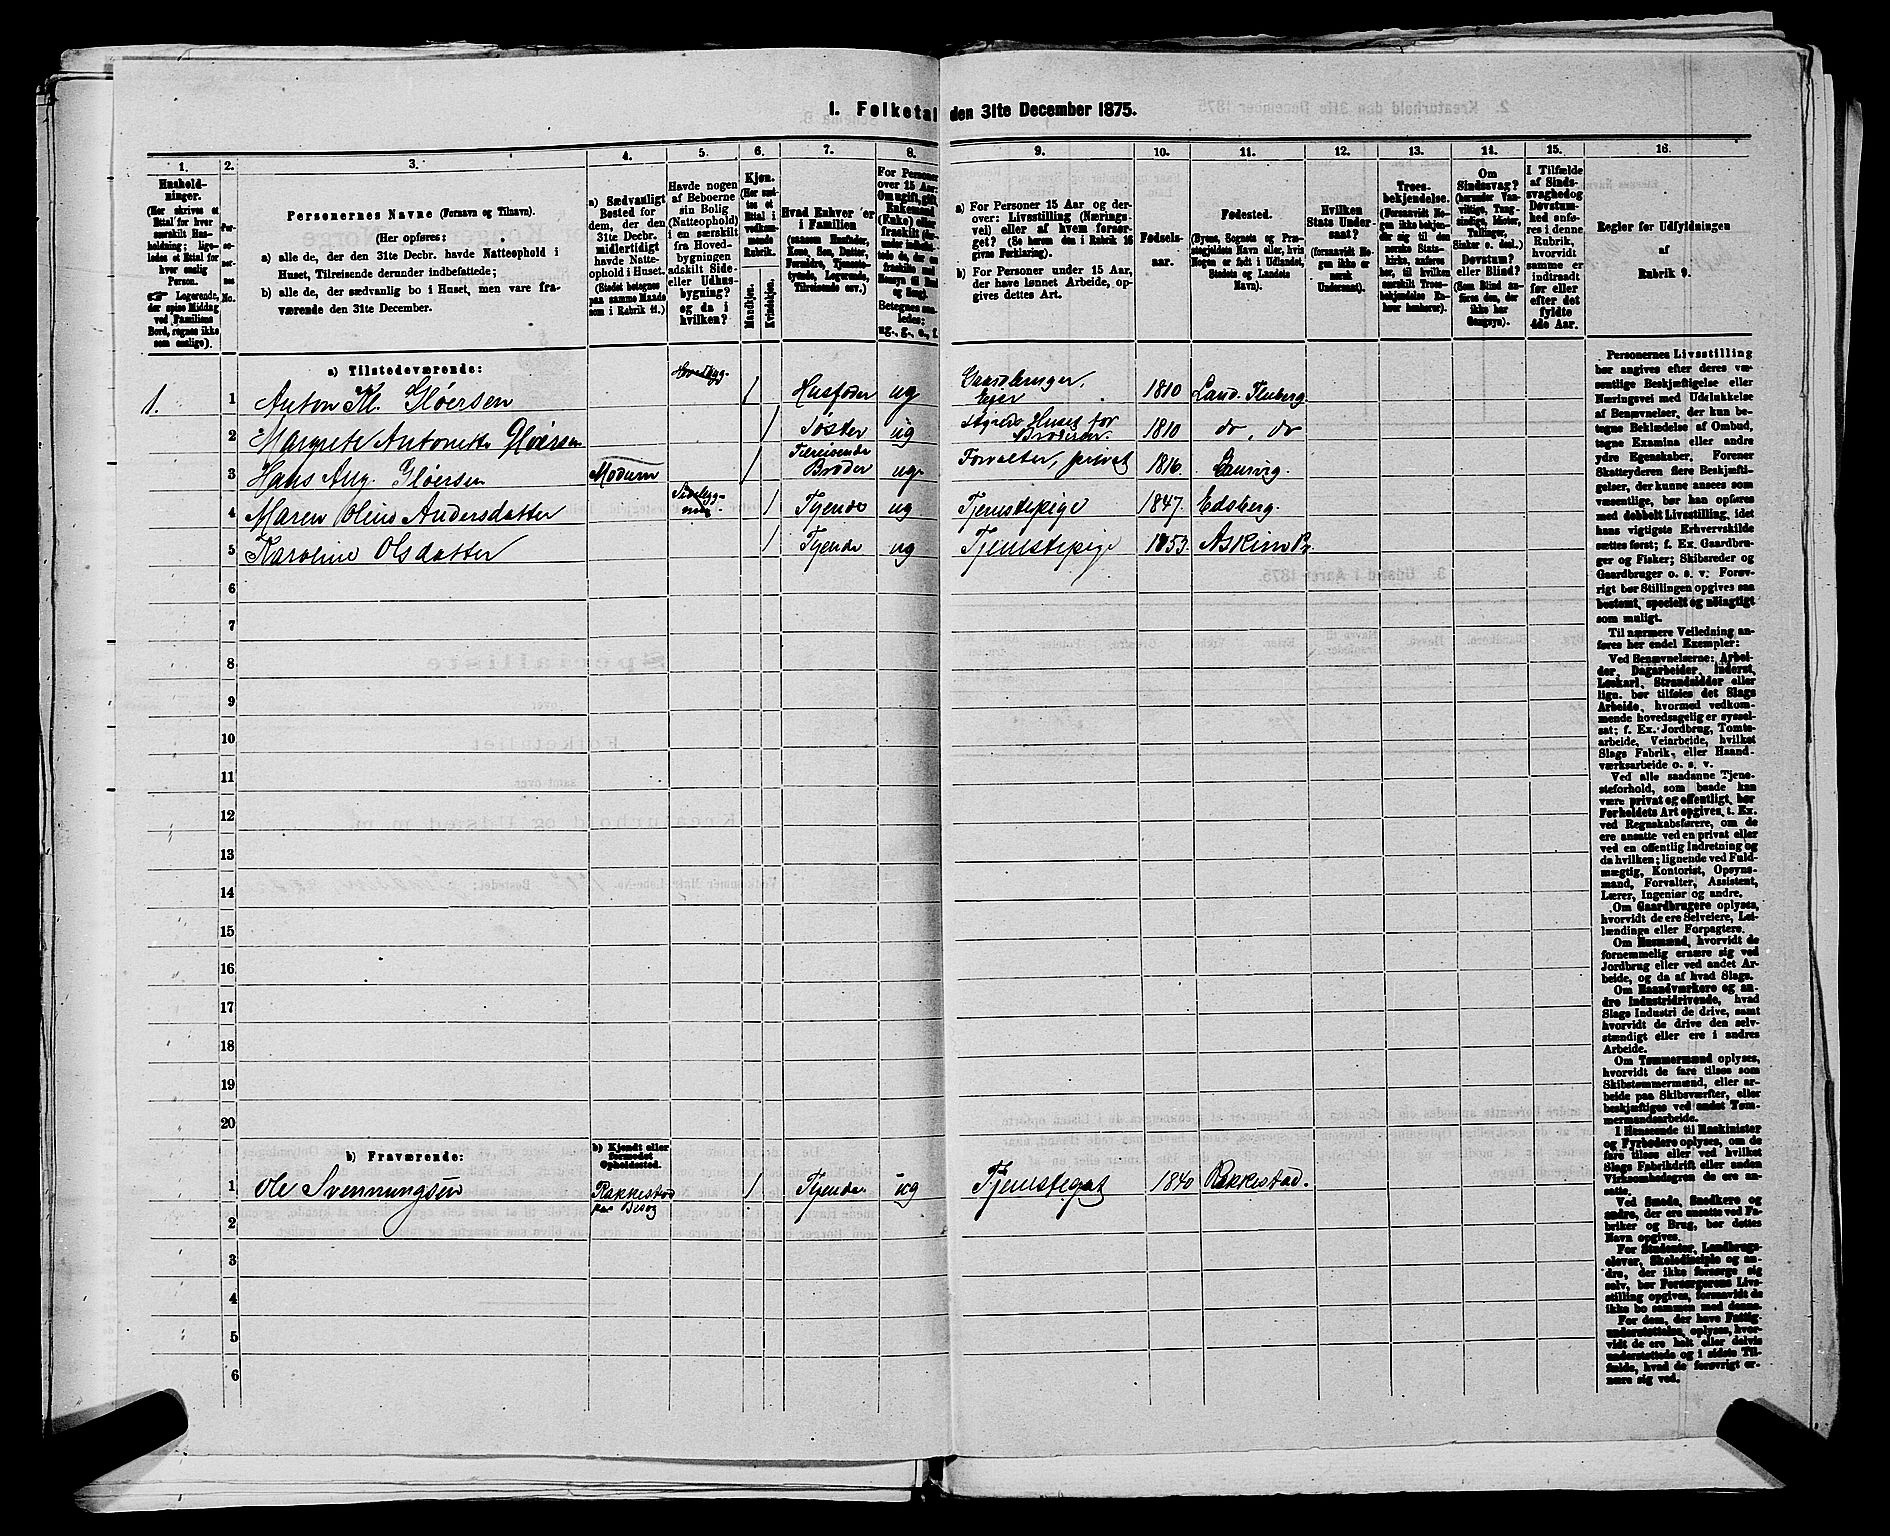 1. Folketal den 31te December 1875.
1.
2.
3.
4.
5.
6.
7.
8.
9.
10.
11.
12.
13.
14.
15.
16.
Hushold-
ninger.
(Her skrives et
Ettal for hver
særskilt Hus-
holdning; lige-
ledes et Ettal for
hver enslig
Person.
Logerende,
der spise Middag
ved Familiens
Bord, regnes ikke
som enslige).
Personernes Navne (Fornavn og Tilnavn).
(Her opføres:
a) alle de, der den 31te Decbr. havde Natteophold i
Huset, Tilreisende derunder indbefattede;
b) alle de, der sædvanlig bo i Huset, men vare fra-
værende den 31te December.
a) Sædvanligt
Bosted for
dem, der den
31te Decbr.
midlertidigt
havde Natte-
ophold i Huset.
(Stedet betegnes
paa samme Maade
som i Rubrik 11.)
Havde nogen
af Beboerne
sin Bolig
(Natteophold)
i en særskilt
fra Hoved-
bygningen
adskilt Side-
eller Udhus-
bygning?
og da i
hvilken?
Kjøn.
(Her sæt-
tes et
Ettal i
vedkom-
mende
Rubrik.
Mandkjøn.
Kvindekjøn.
Hvad Enhver er
i Familien
(saasom Husfader,
Kone, Søn, Datter,
Forældre, Tjeneste-
tyende, Logerende,
Tilreisende osv.)
For Personer
over 15 Aar:
Om ugift, gift,
Enkemand
(Enke) eller
fraskilt
Betegnes saa-
ledes:
ug., g., e., f.
a) For Personer 15 Aar og der-
over: Livsstilling (Nærings-
vei) eller af hvem forsør-
get? (Se herom den i Rubrik 16
givne Forklaring).
b) For Personer under 15 Aar,
der have lønnet Arbeide, op-
gives dettes Art.
Fødsels-
aar.
Fødested.
(Byens, Sognets og Præ-
stegjeldets Navn eller, hvis
Nogen er født i Udlandet,
Stedets og Landets
Navn).
Hvilken
Stats Under-
saat?
(forsaavidt No-
gen ikke er
norsk
Undersaat).
Troes-
bekjendelse.
(Forsaavidt No-
gen ikke bekjen-
der sig til den
norske Stats-
kirke, anføres
her, til hvilken
særskilt Troes-
bekjendelse En-
hver henhører).
Om
Sindssvag?
(herunder Van-
vittige, Tung-
sindige, Idioter,
Tullinger,
Sinker o. desl.)
Døvstum?
eller Blind?
(Som Blind an-
føres den, der
ikke har
Gangsyn).
I Tilfælde
af Sinds-
svaghed og
Døvstum-
hed anfø-
res i denne
Rubrik,
hvorvidt
samme er
indtraadt
før eller
efter det
fyldte
4de Aar.
Regler for Udfyldningen
af
Rubrik 9.
a) Tilstedeværende:
1. 1 Anton Kl. Gløersen Hovedbyg. 1 Husfader ug Gaardbruger, Eier 1810 Land. Fluberg.
2 Margrete Antonette Gløersen 1 Søster ug Styrer Huset for Broderen. 1810 do, do
3 Hans Aug. Gløersen Modum 1 Tilreisende Broder ug Forvalter, privat 1816. Laurvig.
4 Maren Oline Andersdatter Sidebyg- ning 1 Tyende ug Tjenstepige 1847. Edsberg.
5 Karoline Olsdatter 1 Tyende ug Tjenstepige 1853. Askim
6
7
8
9
10
11
12
13
14
15
16
17
18
19
20
b) Fraværende:
b) Kjendt eller
formodet
Opholdssted.
1 Ole Svennungsen Rakkestad paa Besøg 1 Tyende ug Tjenstegut 1840 Rakkestad.
2
3
4
5
6
Personernes Livsstilling
bør angives efter deres væ-
sentlige Beskjæftigelse eller
Næringsvei med Udelukkelse
af Benævnelser, der kun be-
tegne Beklædelse af Ombud,
tagne Examina eller andre
ydre Egenskaber. Forener
Skatteyderen flere Beskjæfti-
gelser, der kunne ansees som
væsentlige, bør han opføres
med dobbelt Livsstilling, idet
hans vigtigste Erhvervskilde
sættes først; f. Ex. Gaardbru-
ger og Fisker; Skibsreder og
Gaardbruger o. s. v. Forøv-
rigt bør Stillingen opgives saa
bestemt, specielt og nøiagtigt
som muligt.
Til nærmere Veiledning an-
føres her endel Exempler:
Ved Benævnelserne: Arbei-
der, Dagarbeider, Inderst,
Løskarl, Strandsidder eller
lign. bør tilføies det Slags
Arbeide, hvormed vedkom-
mende hovedsagelig er syssel-
sat; f. Ex. Jordbrug, Tomte-
arbeide, Veiarbeide, hvilket
Slags Fabrik, eller Haand-
værksarbeide o. s. v.
Ved alle saadanne Tjene-
steforhold, som baade kan
være privat og offentligt, bør
Forholdets Art opgives, t. Ex.
ved Regnskabsførere, om de
ere ansatte ved en privat eller
ved en offentlig Indretning og
da hvilken; lignende ved Fuld-
mægtig, Kontorist, Opsyns-
mand, Forvalter, Assistent,
Lærer, Ingeniør og andre.
Om Gaardbrugere oplyses,
hvorvidt de ere Selveiere, Lei-
lændinge eller Forpagtere.
Om Husmænd, hvorvidt de
fornemmelig ernære sig ved
Jordbrug eller ved andet Ar-
beide, og da af hvad Slags.
Om Haandværkere og an-
dre Industridrivende, hvad
Slags Industri de drive, samt
hvorvidt de drive den selv-
stændigt eller ere i andres
Arbeide.
Om Tømmermænd oplyses,
hvorvidt de fare tilsøs som
Skibstømmermænd, eller ar-
beide paa Skibsværfter, eller
beskjæftiges ved andet Tøm-
mermandsarbeide.
I Henseende til Maskinister
og Fyrbødere oplyses, om de
fare tilsøs eller ved hvilket
Slags Fabrikdrift eller anden
Virksomhedsgren de ere an-
satte.
Ved Smede, Snedkere og
andre, der ere ansatte ved Fa-
briker og Brug, bør dettes
Navn opgives.
For Studenter, Landbrugs-
elever, Skoledisciple og an-
dre, der ikke forsørge sig
selv, bør Forsørgerens Livs-
stilling opgives, forsaavidt de
ikke bo sammen med denne.
For dem, der have Fattig-
understøttelse, oplyses, hvor-
vidt de ere helt eller delvis
understøttede og i sidste Til-
fælde, hvad de forøvrigt er-
nære sig ved.